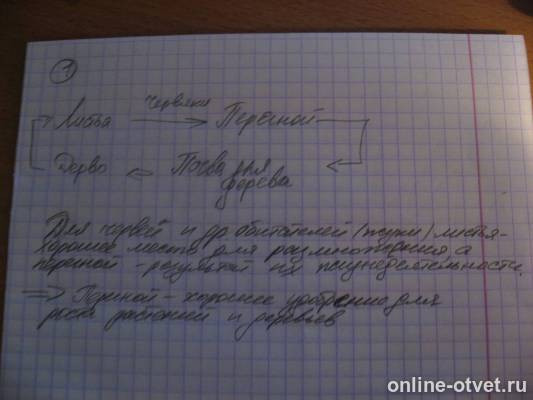 1
червяки
Листья → Перегной
Дерево ← Почва для
дерева
Для червей и др обитателей (жуки) листья-
хорошее место для размножения а
перегной - результат их жизнедеятельности.
=> Перегной - хорошее удобрение для
роста растений и деревьев
online-otvet.ru